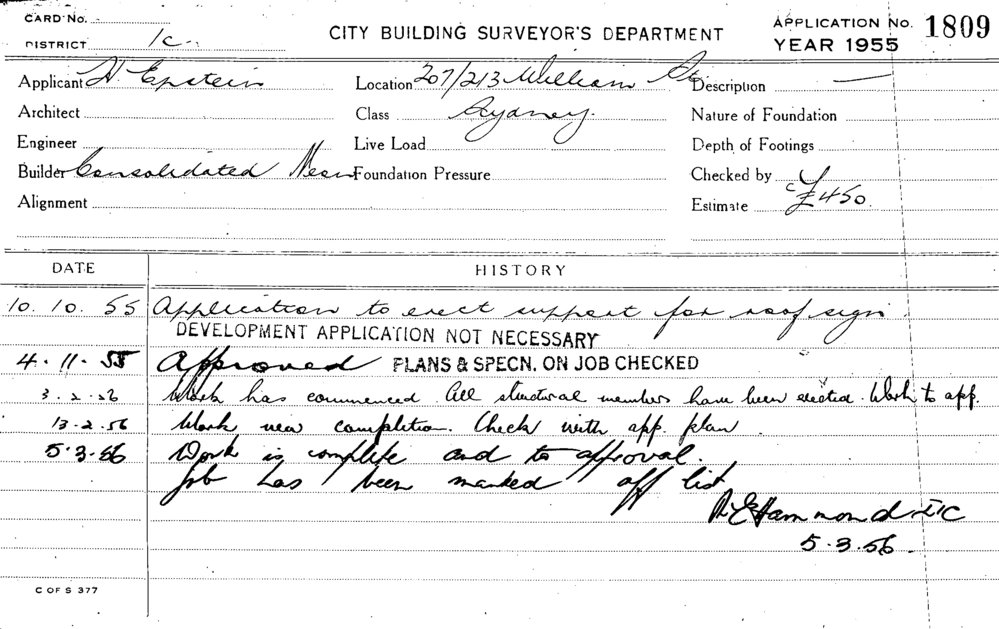 CARD No.
DISTRICT 1c
CITY BUILDING SURVEYOR'S DEPARTMENT
APPLICATION No. 1809
YEAR 1955
Applicant H Epstein
Location 207/213 William St
Description —
Architect
Class Sydney.
Nature of Foundation
Engineer
Live Load
Depth of Footings
Builder Consolidated Neon
Foundation Pressure
Checked by
Alignment
Estimate £450.
DATE HISTORY
10.10.55 Application to erect support for roof sign.
DEVELOPMENT APPLICATION NOT NECESSARY
4.11.55 Approved PLANS & SPECN. ON JOB CHECKED
3.2.56 Work has commenced. All structural members have been erected. Work to app.
13.2.56 Work near completion. Check with app. plan.
5.3.56 Work is complete and to approval.
Job has been marked off list
Hammond
5.3.56.
C OF S 377